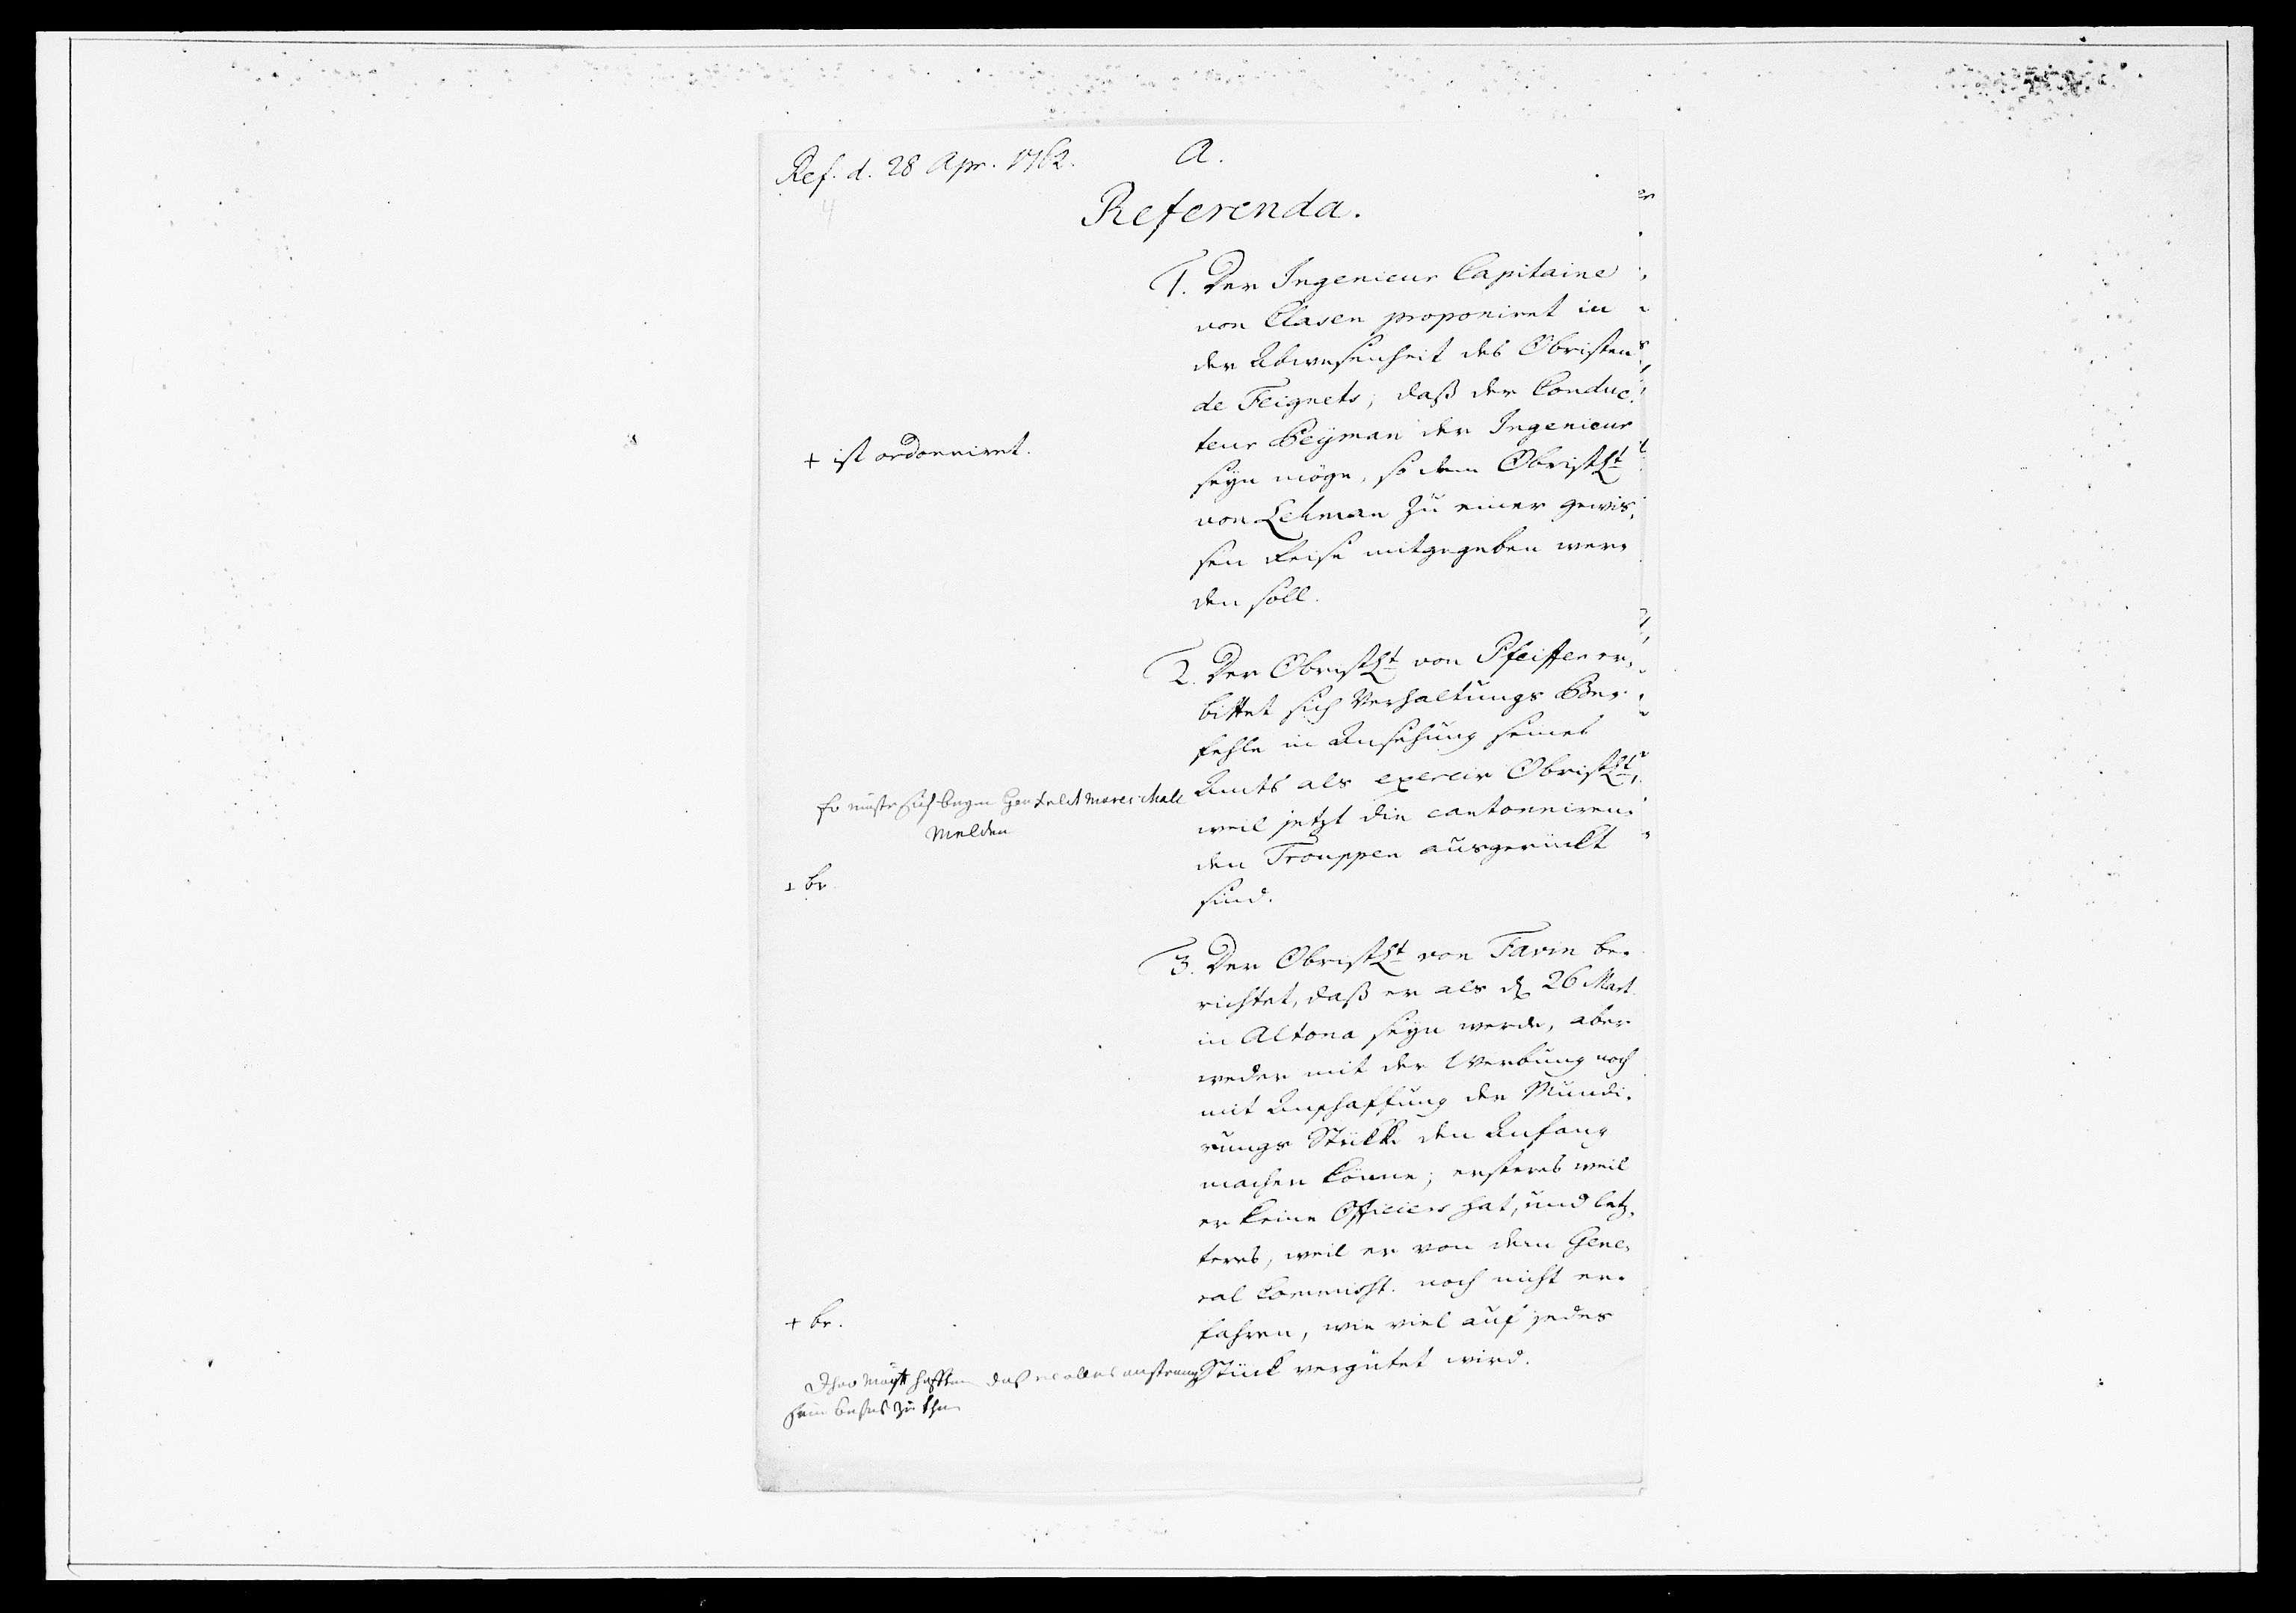 Ref. d. 28 Apr. 1762.
A.
4
Referenda.
1. Der Ingenieur Capitaine
von Clasen proponiret in
der Abwesenheit des Obristen
de Feignets, daß der Conduc-
teur Peÿman der Ingenieur
seyn möge, so dem ObristLt
von Lehman zu einer gewis-
sen Reise mitgegeben wer-
den soll.
+ ist ordonniret.
2. Der ObristLt von Pfeiffer er-
bittet sich Verhaltungs Be-
fehle in Ansehung seines
Amts als exercir ObristLt,
weil jetzt die cantonniren-
den Trouppen ausgerückt
sind.
Er müste sich beym Feldt Mareschall
Melden
+ br.
3. Der ObristLt von Favin be-
richtet, daß er als d 26 Mart.
in Altona seyn werde, aber
weder mit der Werbung noch
mit Anschaffung der Mundi-
rungs Stükke den Anfang
machen könne; ersteres weil
er keine Officiers hat, und letz-
teres, weil er von dem Gene-
ral Commisst. noch nicht er-
fahren, wie viel auf jedes
Stück vergütet wird.
+ br.
Ihro Maytt hofften daß er alles anstreng
sein bestes zu thun